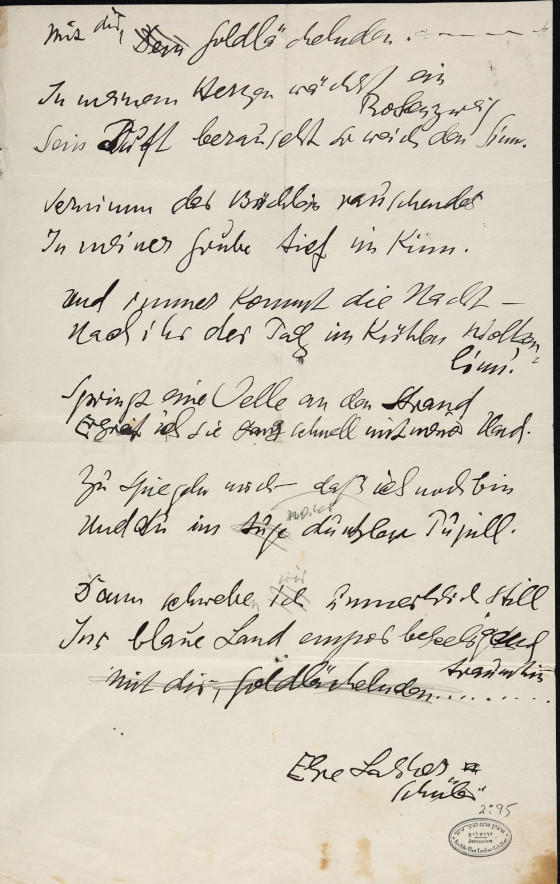 Mit dir, Dem Goldlächelnden.
In meinem Herzen wächst ein
Rosenzweig
Sein Duft berauscht so weich den Sinn.
Vernimm des Bächleins rauschendes
In meiner Grube tief im Kinn.
Und immer kommt die Nacht –
Nach ihr der Tag im Kühlen Wolken
linn!
Springt eine Welle an den Strand
Ergreif ich sie ganz schnell mit meiner Hand.
Zu spiegeln mich – daß ich noch bin
Und du im Auge meiner dunklen Pupill.
Dann schwebe ich immerlich still
Ins blaue Land empor beseeligend
traumhin
Mit dir, Goldlächelnden.........
Else Lasker
Schüler
2:95
ירושלים
Jerusalem
Archiv Else Lasker-Schüler